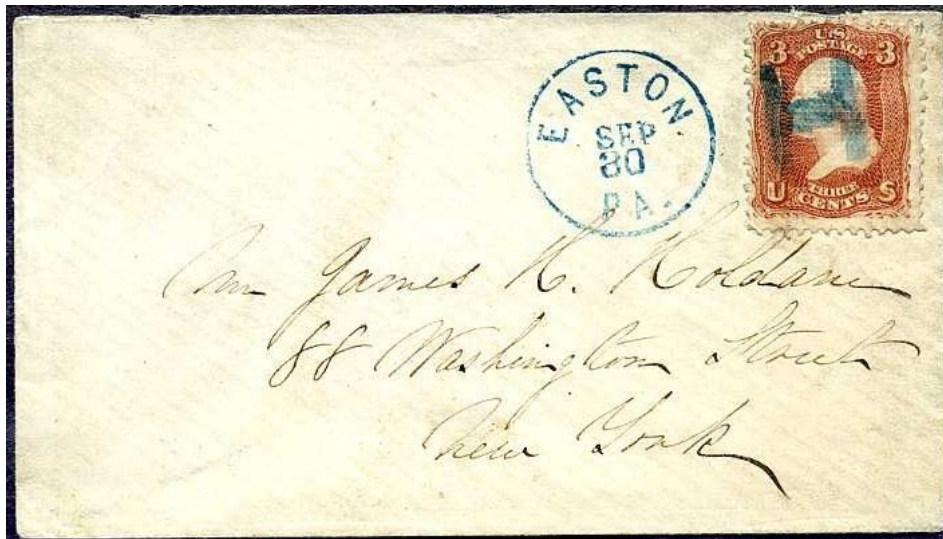 EASTON
SEP
30
PA.
3 U.S. 3
POSTAGE
U THREE S
CENTS
James H. Holdane
88 Washington Street
New York